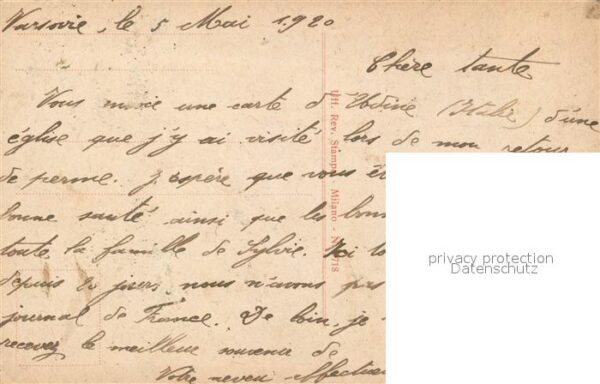 Varsovie, le 5 Mai 1920
Chère tante
Vous envoie une carte d'Udine (Italie) d'une
église que j'y ai visité lors de mon retour
de perme. J'espère que vous êt
bonne santé ainsi que les bon
toute la famille de Sylvie. Ici to
depuis 8 jours nous n'avons pas
journal de France. De loin, je
recevez le meilleur souvenir de
Votre neveu affectueu
Uff. Rev. Stampa Milano - N. 718
privacy protection
Datenschutz